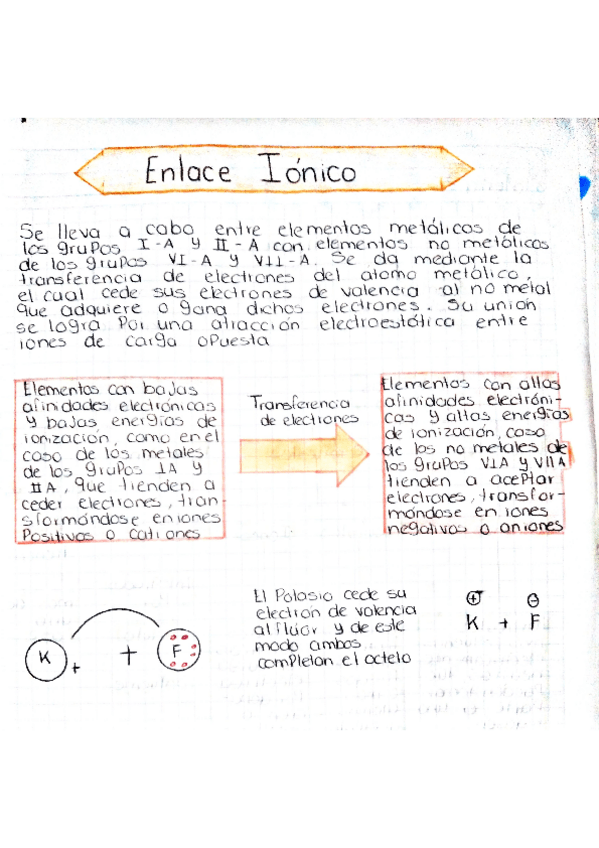 Enlace Iónico
Se lleva a cabo entre elementos metálicos de
los grupos I-A y II-A con elementos no metálicos
de los grupos VI-A y VII-A. Se da mediante la
transferencia de electrones del atomo metálico,
el cual cede sus electrones de valencia al no metal
que adquiere o gana dichos electrones. Su union
se logra Por una atracción electroestática entre
iones de carga opuesta
Elementos con bajas
afinidades electrónicas
y bajas energías de
ionización, como en el
caso de los metales
de los grupos IA y
IIA, que tienden a
ceder electrones, tran-
sformándose en iones
Positivos o cationes
Transferencia
de electrones
Elementos con altas
afinidades electróni-
cas y altas energías
de ionización, caso
de los no metales de
los grupos VIA y VIIA
tienden a aceptar
electrones, transfor-
mándose en iones
negativos o aniones
K + + F
El Potasio cede su
electron de valencia
al fluor y de este
modo ambos
completan el octeto
+ -
K + F